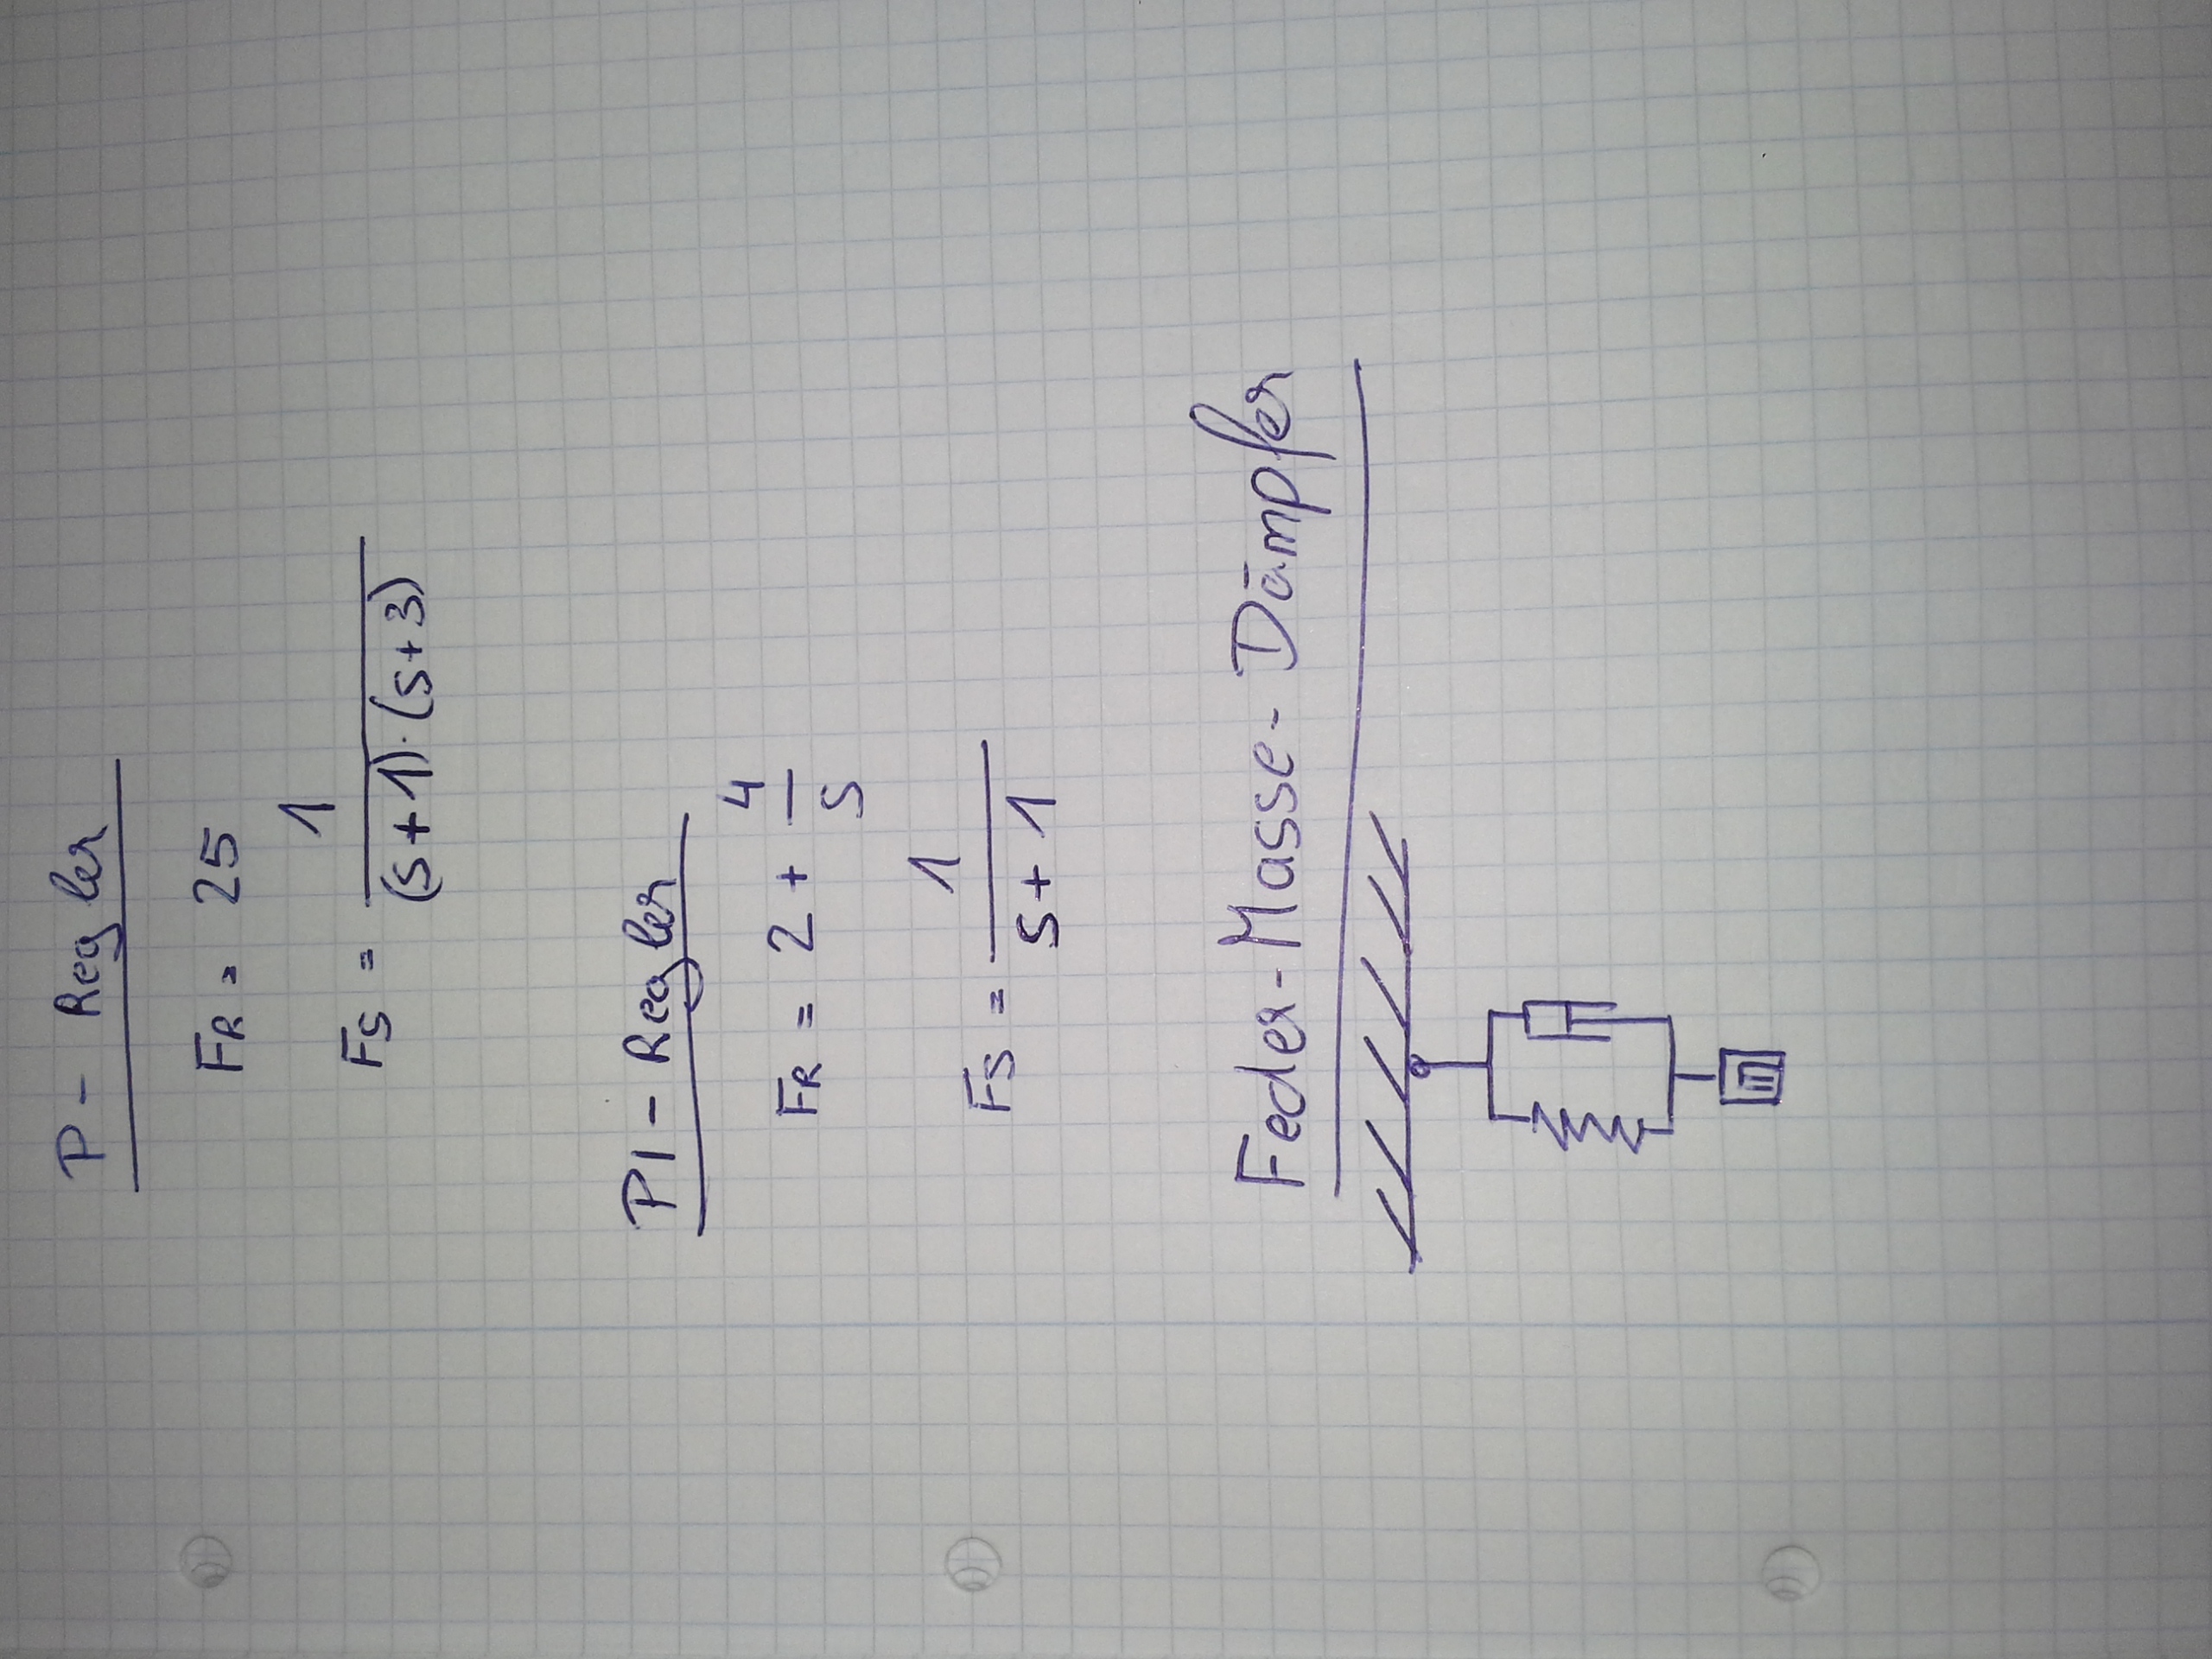 P - Regler
FR = 25
FS = 1 / (s+1)·(s+3)
PI - Regler
FR = 2 + 4/s
FS = 1 / s+1
Feder-Masse-Dämpfer
m